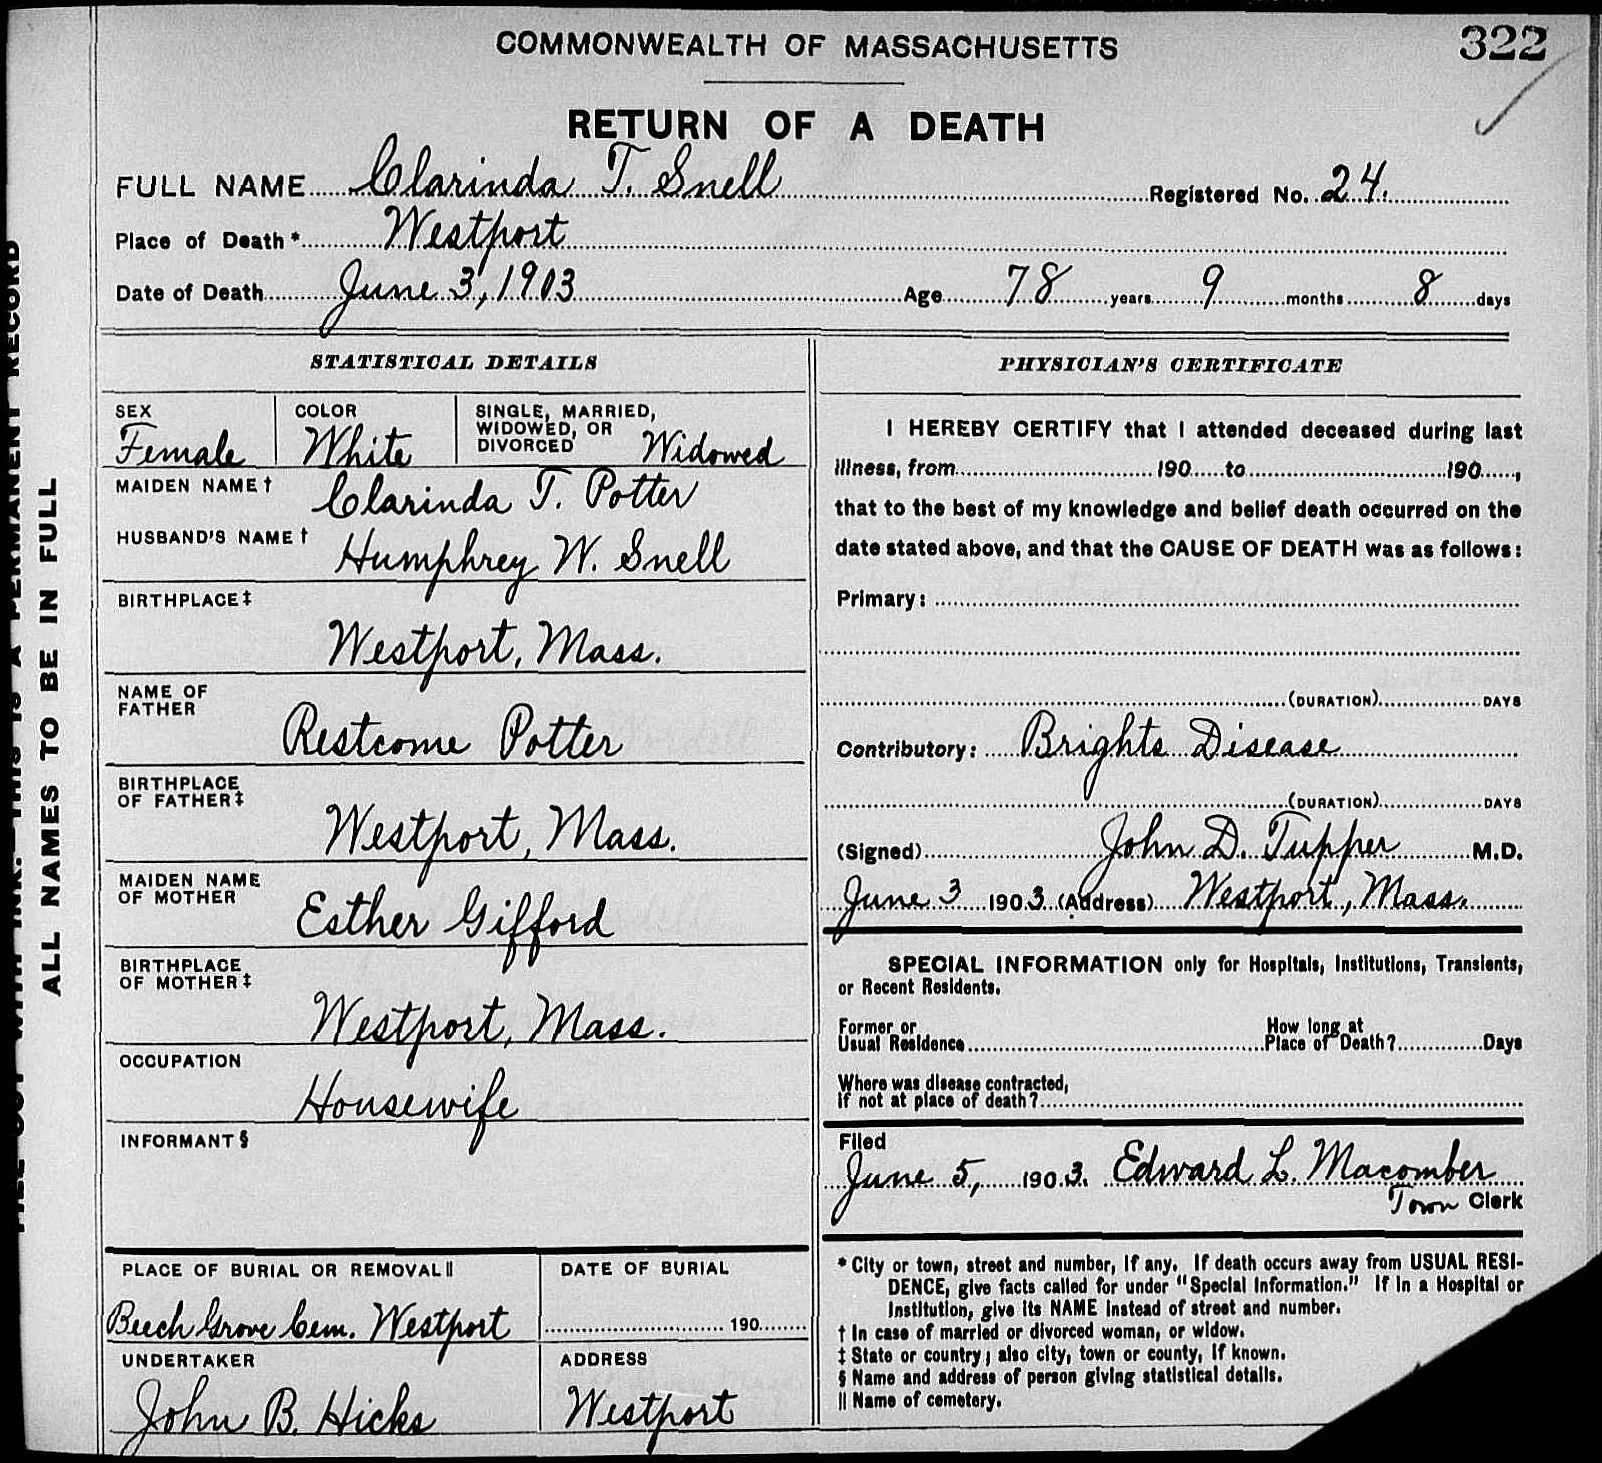 COMMONWEALTH OF MASSACHUSETTS
322
RETURN OF A DEATH
FULL NAME Clarinda T. Snell Registered No. 24.
Place of Death* Westport
Date of Death June 3, 1903 Age 78 years 9 months 8 days
STATISTICAL DETAILS
SEX
Female
COLOR
White
SINGLE, MARRIED,
WIDOWED, OR
DIVORCED Widowed
MAIDEN NAME† Clarinda T. Potter
HUSBAND'S NAME† Humphrey W. Snell
BIRTHPLACE‡
Westport, Mass.
NAME OF
FATHER
Restcome Potter
BIRTHPLACE
OF FATHER‡
Westport, Mass.
MAIDEN NAME
OF MOTHER
Esther Gifford
BIRTHPLACE
OF MOTHER‡
Westport, Mass.
OCCUPATION
Housewife
INFORMANT§
PLACE OF BURIAL OR REMOVAL||
Beech Grove Cem. Westport
DATE OF BURIAL
190
UNDERTAKER
John B. Hicks
ADDRESS
Westport
PHYSICIAN'S CERTIFICATE
I HEREBY CERTIFY that I attended deceased during last
illness, from 190 to 190 ,
that to the best of my knowledge and belief death occurred on the
date stated above, and that the CAUSE OF DEATH was as follows:
Primary:
(DURATION) DAYS
Contributory: Brights Disease
(DURATION) DAYS
(Signed) John D. Tupper M.D.
June 3 1903 (Address) Westport, Mass.
SPECIAL INFORMATION only for Hospitals, Institutions, Transients,
or Recent Residents.
Former or
Usual Residence
How long at
Place of Death? Days
Where was disease contracted,
if not at place of death?
Filed
June 5, 1903. Edward L. Macomber
Town Clerk
* City or town, street and number, if any. If death occurs away from USUAL RESI-
DENCE, give facts called for under "Special Information." If in a Hospital or
Institution, give its NAME instead of street and number.
† In case of married or divorced woman, or widow.
‡ State or country; also city, town or county, if known.
§ Name and address of person giving statistical details.
|| Name of cemetery.
THIS IS A PERMANENT RECORD
ALL NAMES TO BE IN FULL